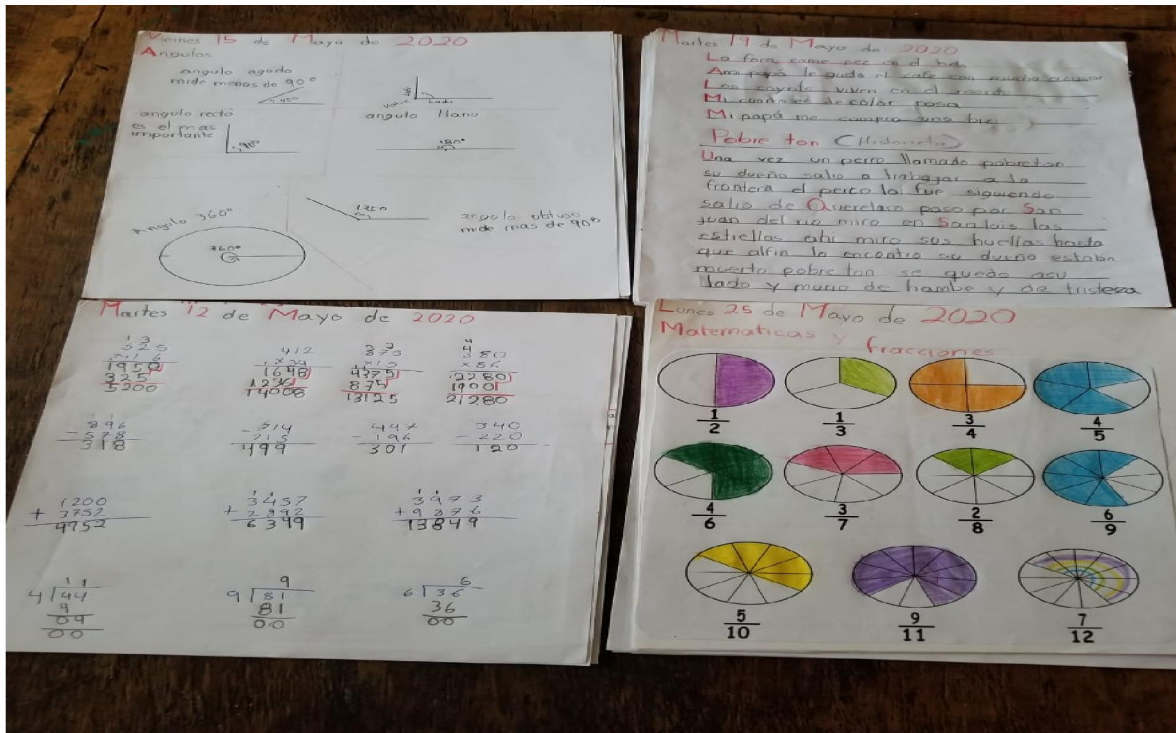 Viernes 15 de Mayo de 2020
Angulos
angulo agudo
mide menos de 90°
lado
lado
angulo recto
es el mas
importante
90°
angulo llano
180°
Angulo 360°
360°
angulo obtuso
mide mas de 90°
Martes 19 de Mayo de 2020
La foca come pez en el
A mi papá le gusta el cafe con mucha azucar
Los coyote viven en el
Mi cuarto es de color rosa
Mi papá me compro una bici
Pobre ton (Historieta)
Una vez un perro llamado pobreton
su dueño salio a trabajar a la
frontera el perro lo fue siguiendo
salio de Queretaro paso por San
juan del rio miro en San luis las
estrellas ahi miro sus huellas hasta
que alfin lo encontro su dueño estaba
muerto pobre ton se quedo asu
lado y murio de hambe y de tristeza
Martes 12 de Mayo de 2020
325 412 875 380
×16 ×34 ×15 ×56
1950 1648 4375 2280
325 1236 875 1900
5200 14008 13125 21280
896 714 497 340
-578 -215 -196 -220
318 499 301 120
1200 3457 3973
+ 3752 + 2892 + 9876
4952 6349 13849
11 9 6
4 44 9 81 6 36
4 81 36
04 00 00
00
Lunes 25 de Mayo de 2020
Matematicas y fracciones
1/2 1/3 3/4 4/5
4/6 3/7 2/8 6/9
5/10 9/11 7/12